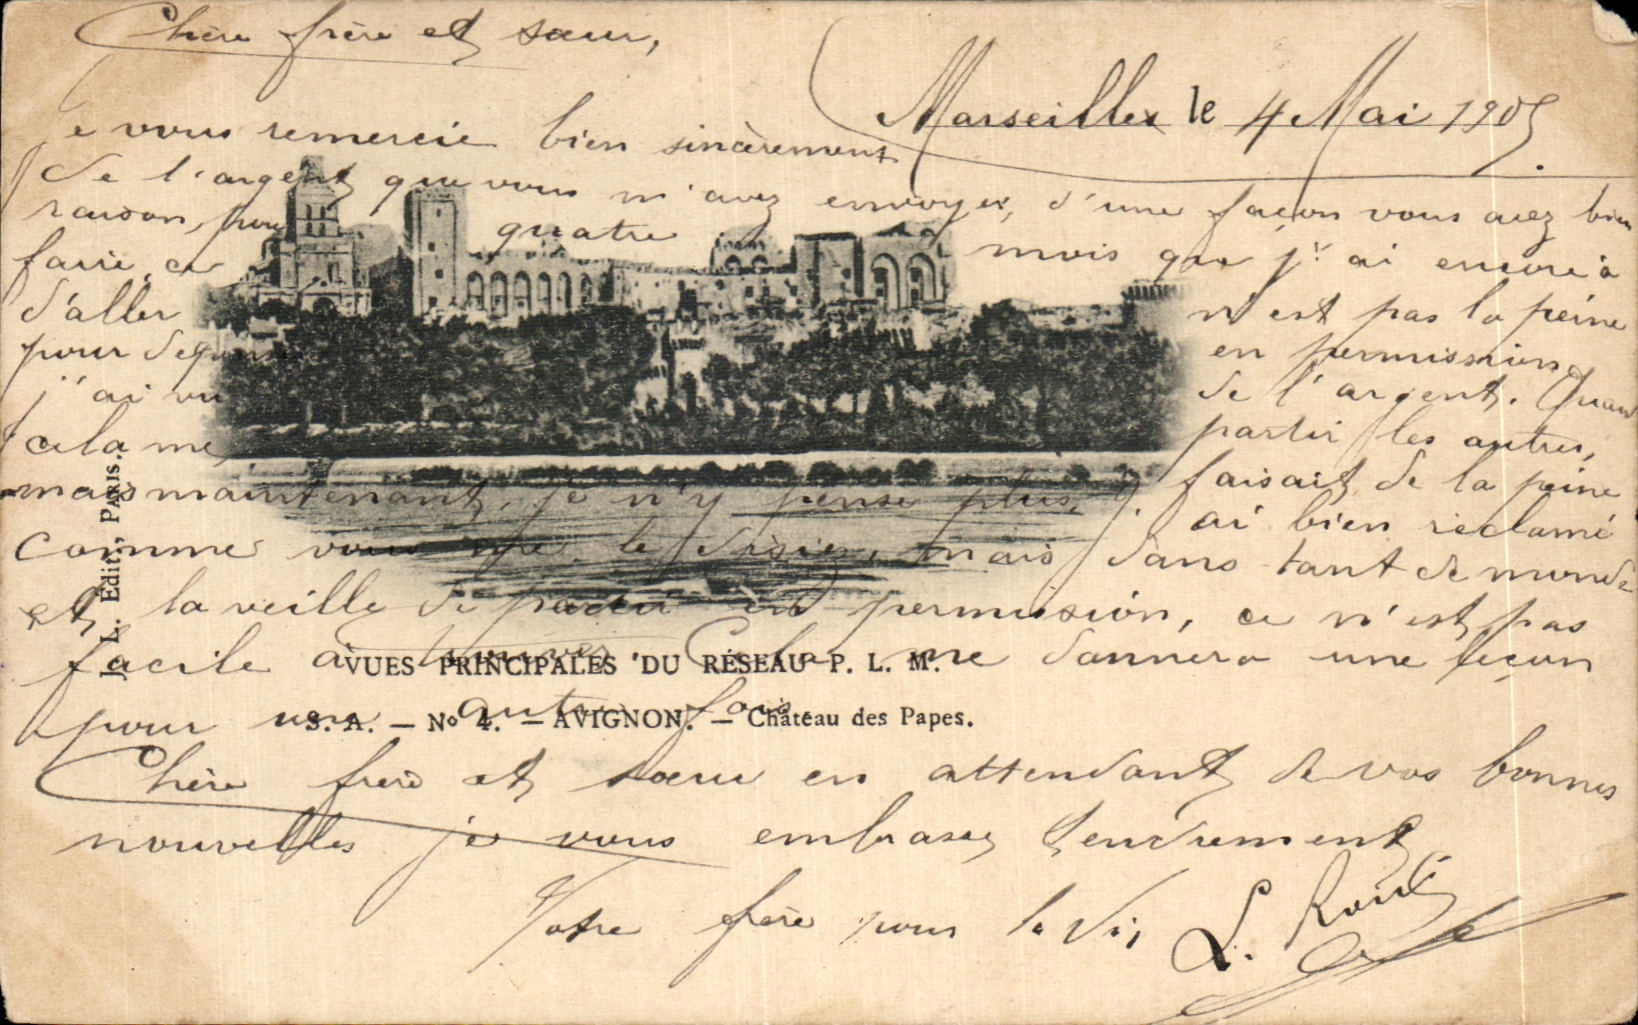 Marseilles le 4 Mai 1905.
Chère frère et sœur,
Je vous remercie bien sincèrement
de l'argent que vous m'avez envoyer, d'une façon vous avez bien
raison, pour quatre mois que j'ai encore à
faire, ce n'est pas la peine
d'aller en permission
pour de l'argent. Quand
j'ai vu partir les autres,
cela me faisait de la peine
mais maintenant, je n'y pense plus. J'ai bien réclamé
comme vous me le disiez, mais dans tant de monde
et la veille de partir en permission, ce n'est pas
facile à trouver Cela me donnera une leçon
pour une autre fois.
Chère frère et sœur en attendant de vos bonnes
nouvelles je vous embrasez tendrement
Votre frère pour la vie,
L.
J. L. Edit., PARIS.
VUES PRINCIPALES DU RÉSEAU P. L. M.
S. A. — No 4. — AVIGNON. — Château des Papes.